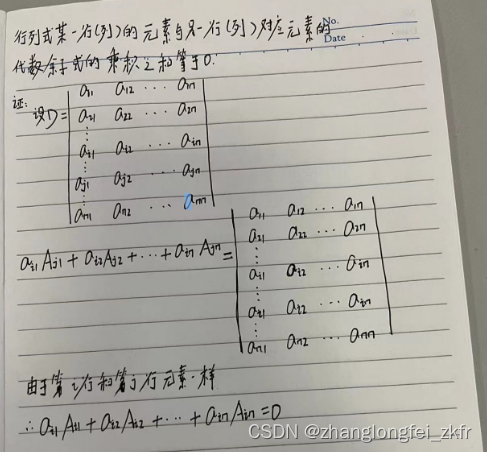 行列式某一行(列)的元素与另一行(列)对应元素的
No.
Date
代数余子式的乘积之和等于0.
证:
设D=
a11 a12 ··· a1n
a21 a22 ··· a2n
⋮
ai1 ai2 ··· ain
⋮
aj1 aj2 ··· ajn
⋮
an1 an2 ··· ann
ai1Aj1+ai2Aj2+···+ainAjn=
a11 a12 ··· a1n
a21 a22 ··· a2n
⋮
ai1 ai2 ··· ain
⋮
ai1 ai2 ··· ain
⋮
an1 an2 ··· ann
由于第i行和第j行元素一样
∴ai1Ai1+ai2Ai2+···+ainAin=0
CSDN @zhanglongfei_zkfr